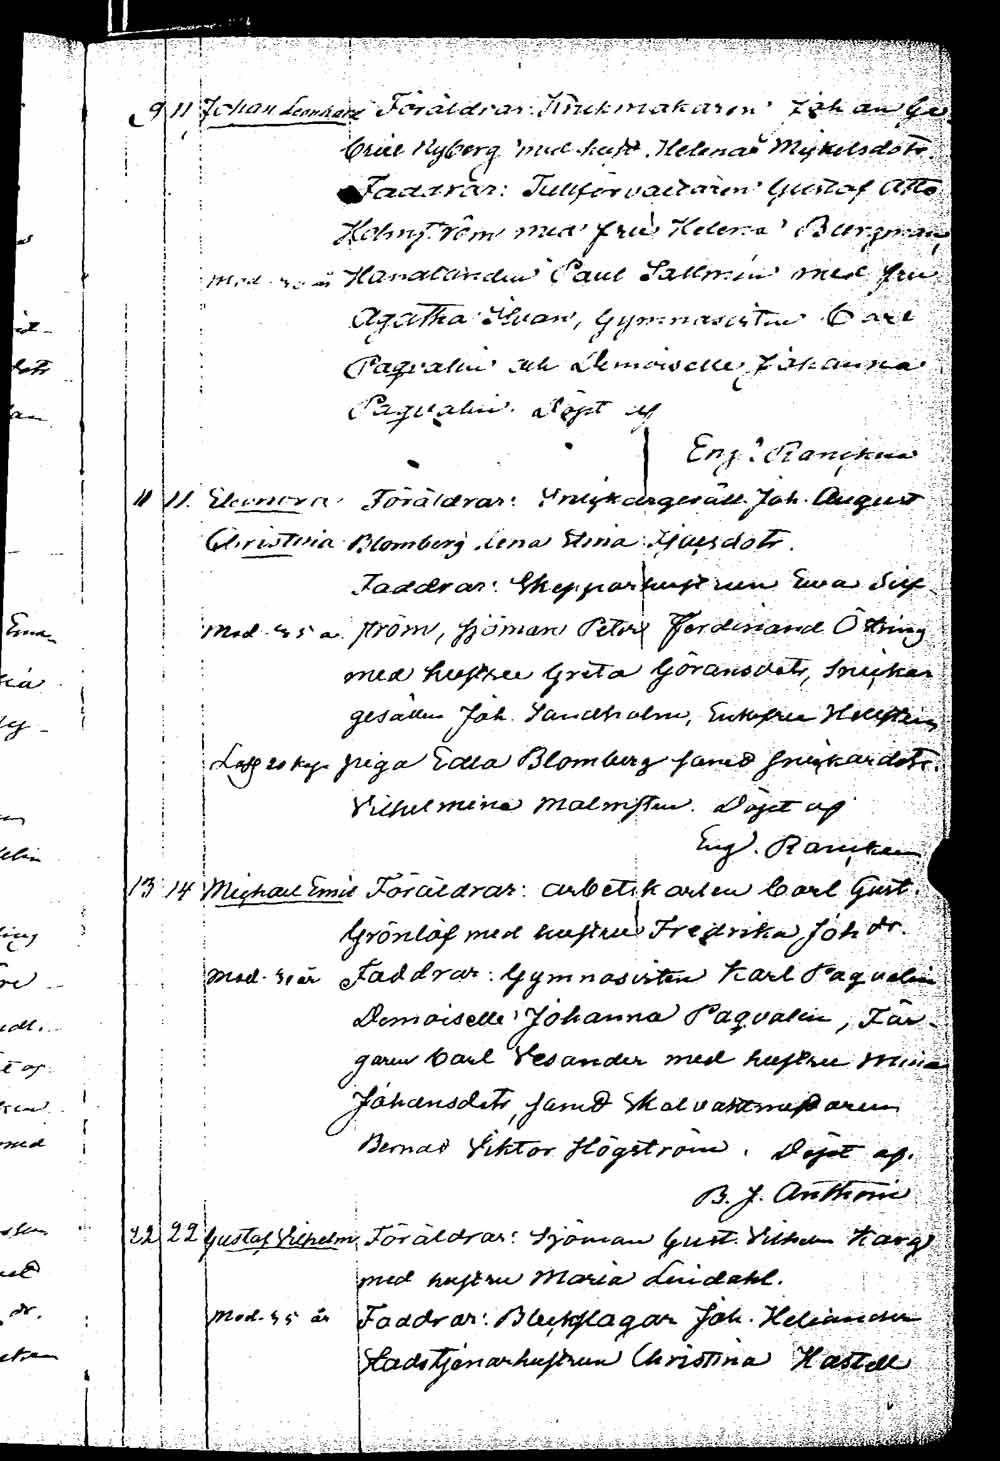 9 11 Johan Leonhard Föräldrar: Krukmakaren Johan Ga-
briel Nyberg med hust. Helena Mickelsdotr.
Faddrar: Tullförvaltaren Gustaf Otto
Holmström med fru Helena Bergman,
Mod. år Handlanden Paul Sallmén med fru
Agatha, Gymnasisten Carl
Paqvalin och Demoiselle Johanna
Paqvalin. Döpt af
Eng. Rancken
11 11. Eleonora Föräldrar: Snickargesäll. Joh. August
Christina Blomberg Lena Stina
Faddrar: Skepparhustrun Ewa Sjö-
Mod. 35 a. ström, Sjöman Petter Ferdinand Östring
med hustru Greta Göransdotr, Snickar
gesällen Joh. Sandholm, Enkefru
piga Edla Blomberg samt Snickardotr.
Vilhelmina Malmsten. Döpt af
Eng. Rancken
13 14 Michael Emil Föräldrar: arbetskarlen Carl Gust.
Grönlöf med hustru Fredrika Joh dr.
Mod. 31 år Faddrar: Gymnasisten Karl Paqvalin
Demoiselle Johanna Paqvalin, Fär-
garen Carl Vesander med hustru Mina
Johansdotr, samt
Bernat Viktor Högström. Döpt af.
B. J. Anthoni
22 22 Gustaf Vilhelm Föräldrar: Sjöman Gust. Vilhelm Karg
med hustru Maria Lindahl.
Mod. 35 år Faddrar: Bleckslagar Joh. Heliander
Stadstjenarhustrun Christina Hastell